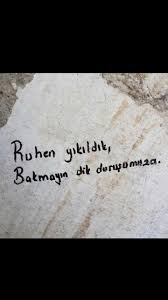 Ruhen yıkıldık,
Bakmayın dik duruşumuza.